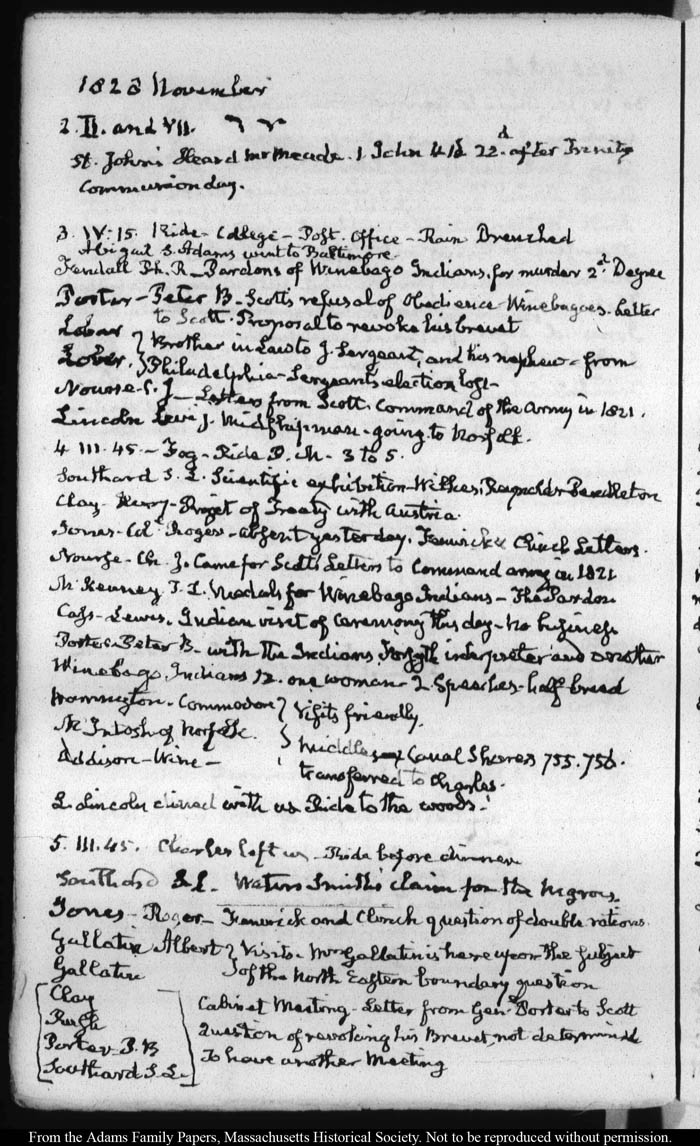 1828 November
2. II. and VII.
St. John's Heard Mr Meade. 1. John 4. 18. 22d. after Trinity
Communion day.
3. IV: 15. Ride - College - Post. Office - Rain Drenched
Abigail S. Adams went to Baltimore.
Kendall Ph. R - Pardons of Winebago Indians, for murder 2d. Degree
Porter - Peter B - Scott's refusal of Obedience - Winebagoes. Letter
to Scott. Proposal to revoke his brevet
Brother in Law to J. Sergeant, and his nephew - from
Philadelphia - Sergeant's election lost -
Nourse - C. J - Letters from Scott. Command of the Army in 1821.
Lincoln Levi J. Midshipman - going to Norfolk.
4 III. 45. - Fog - Ride P. M. 3 to 5.
Southard S. L. Scientific exhibition - Wilkes, Reynolds Pendleton
Clay - Henry - Projet of Treaty with Austria.
Jones - Col. Roger - absent yesterday. Fenwick & Clinch Letters.
Nourse - Ch. J. Came for Scott's Letters to Command army in 1821
McKenney T. L. Medals for Winebago Indians - The Pardon
Cass - Lewis. Indian visit of Ceremony this day - no business
Porter - Peter B. with the Indians, Forsyth interpreter and another
Winebago Indians 12. one woman - 2 Speeches - half breed
Warrington. Commodore } Visits friendly.
McIntosh of Norfolk.
Addison - Wine - } Middlesex Canal Shares 755. 756.
transferred to Charles.
L. Lincoln dined with us Ride to the woods.
5. III. 45. Charles left us - Ride before dinner
Southard S. L. Waters Smith's claim for the Negroes
Jones - Roger - Fenwick and Clinch question of double rations.
Gallatin Albert } Visits - Mr Gallatin is here upon the subject
Gallatin } of the North Eastern boundary question
Clay
Rush
Porter P. B
Southard S. L.
Cabinet Meeting - Letter from Genl. Porter to Scott
Question of revoking his Brevet, not determined
To have another Meeting
From the Adams Family Papers, Massachusetts Historical Society. Not to be reproduced without permission.